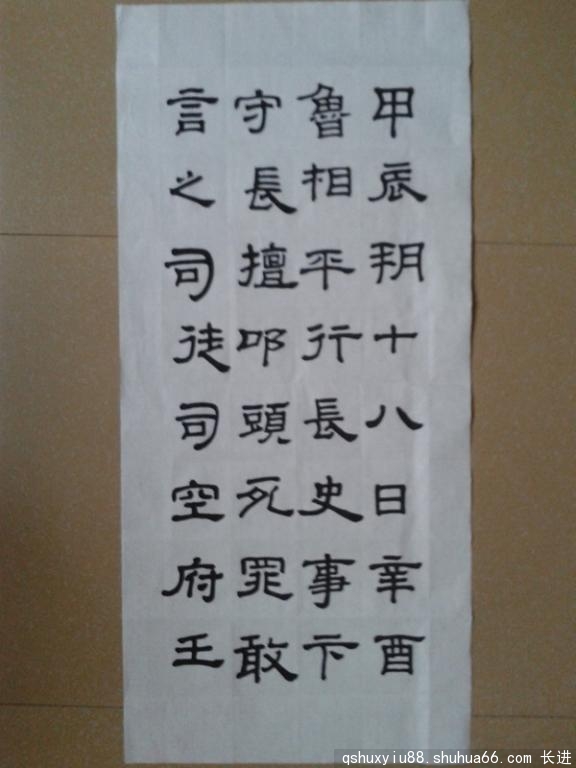 甲辰朔十八日辛酉
魯相平行長史事卞
守長擅叩頭死罪敢
言之司徒司空府王
qshuxyiu88.shuhua66.com 长进